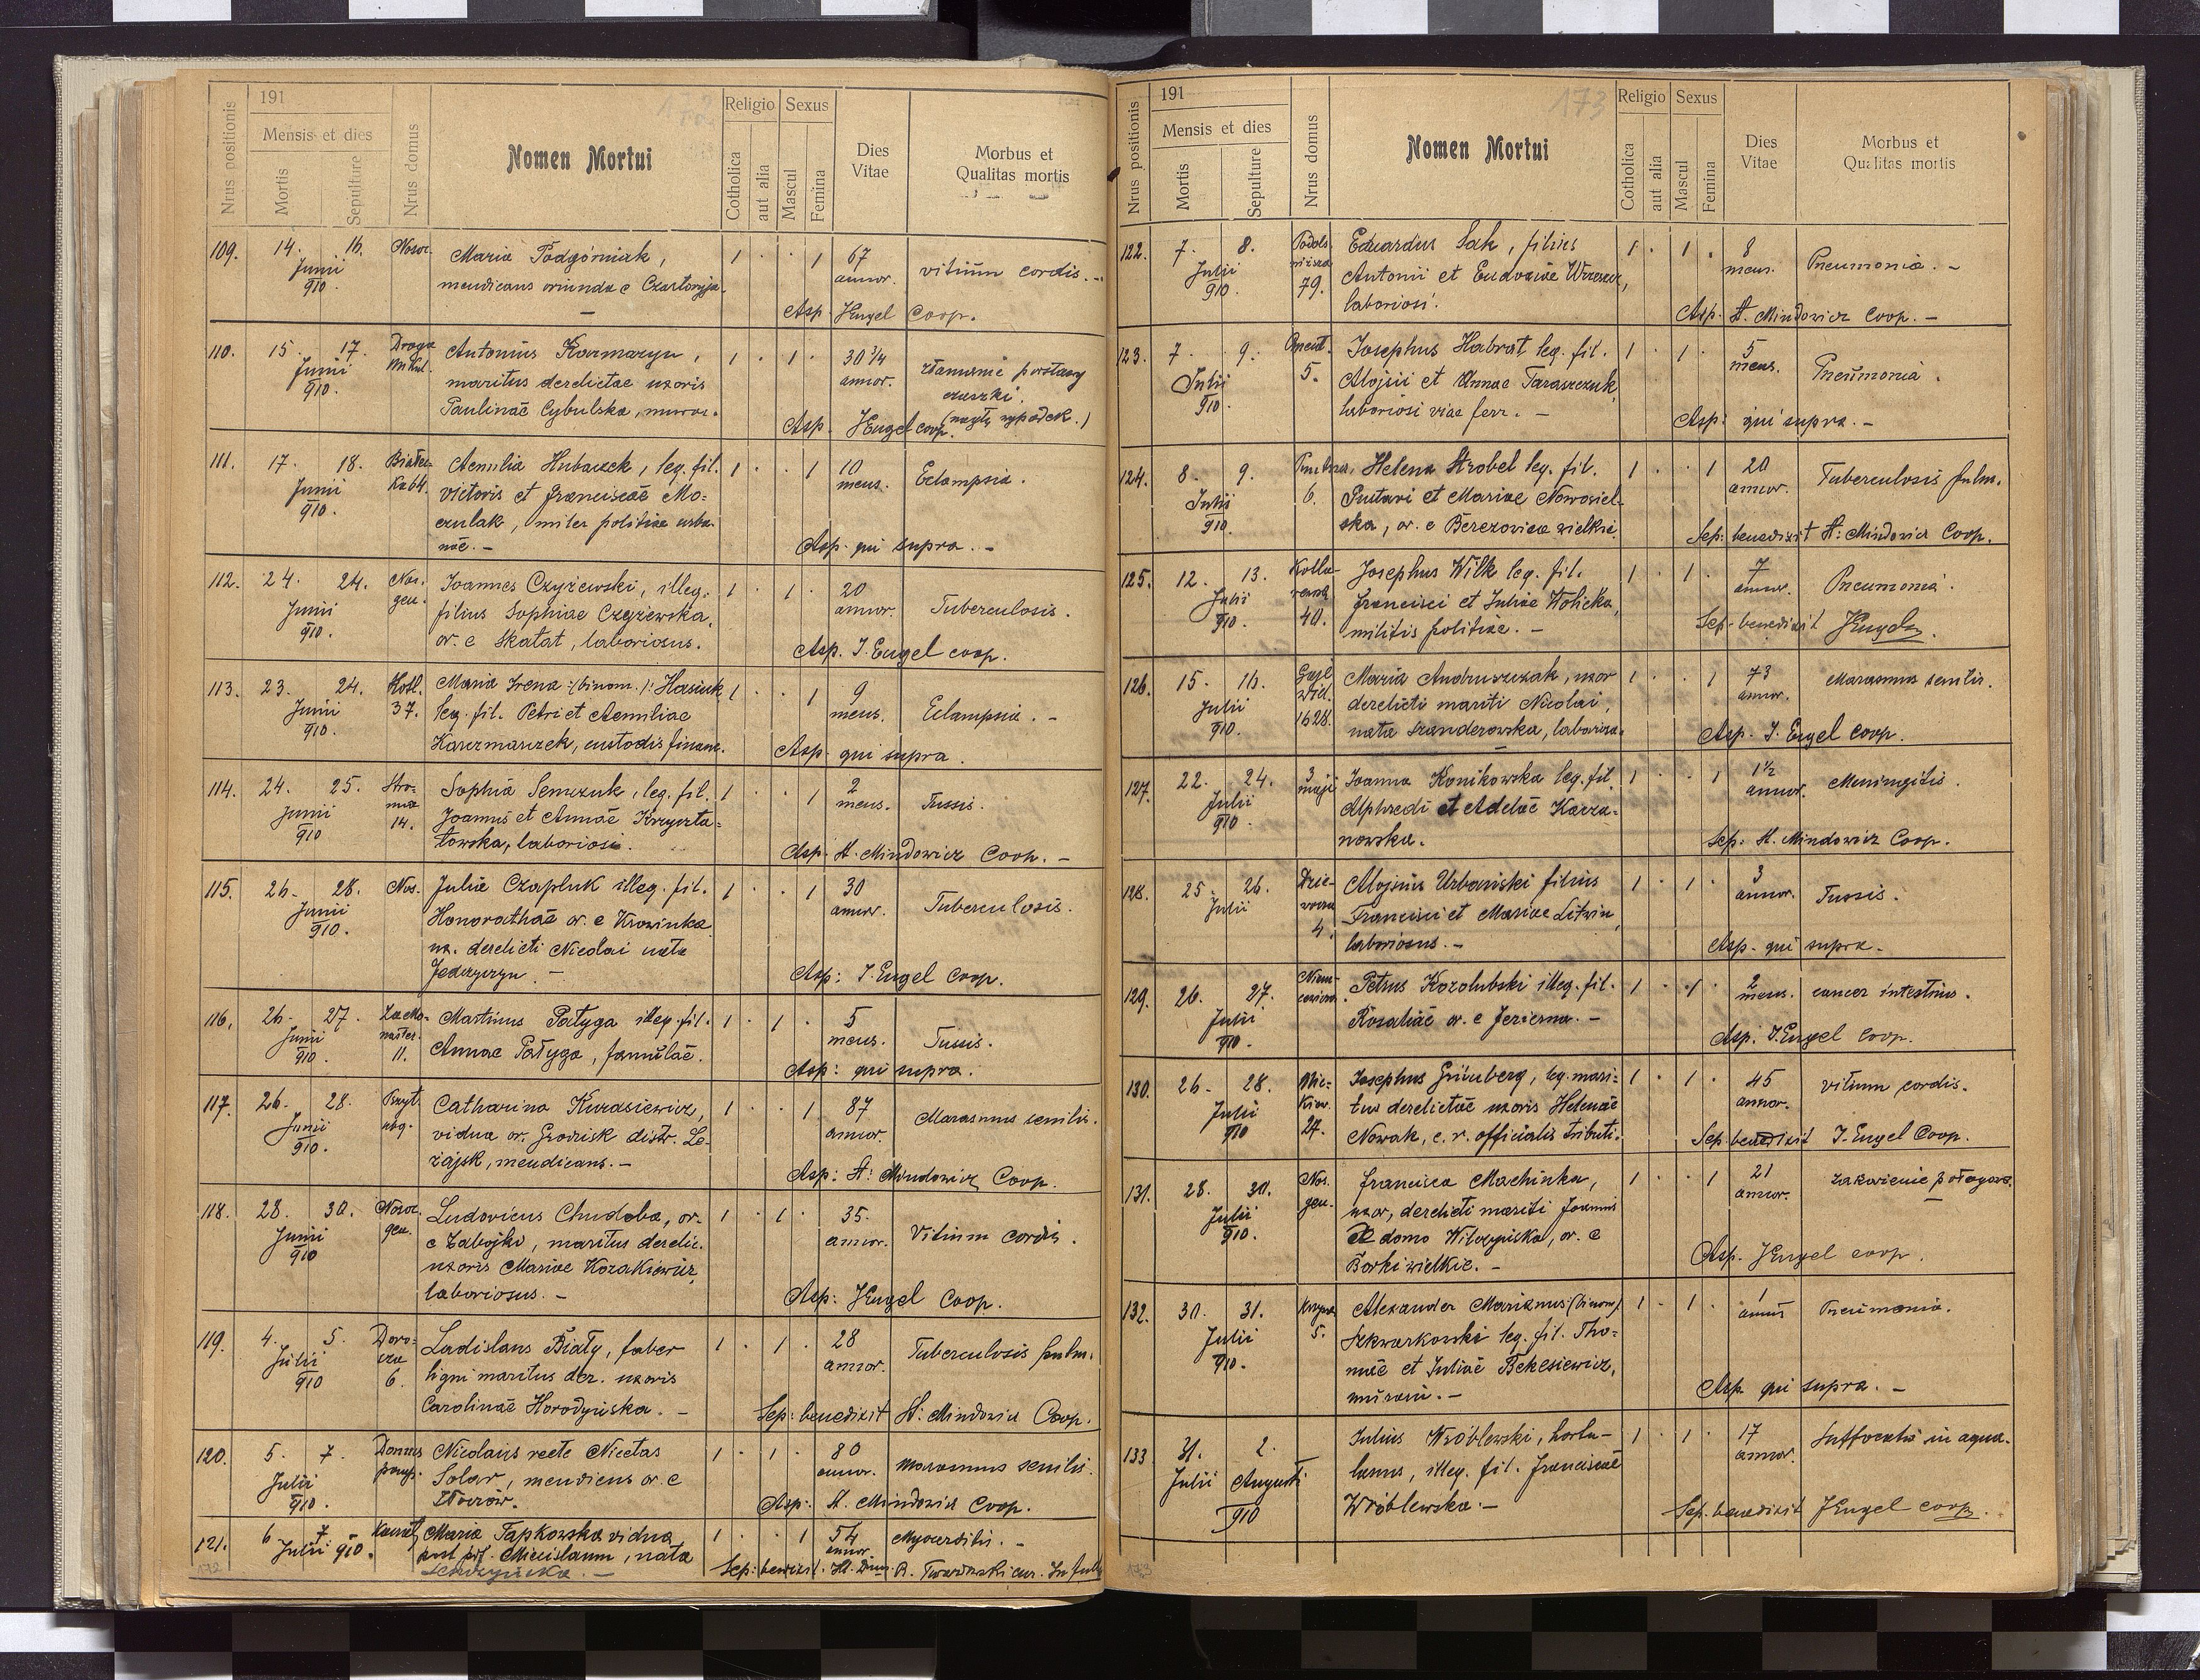 191
172
Religio
Sexus
Nrus positionis
Mensis et dies
Mortis
Sepulture
Nrus domus
Nomen Mortui
Catholica
aut alia
Mascul
Femina
Dies Vitae
Morbus et
Qualitas mortis
109. 14. 16. Nosoc. Maria Podgórniak, 1 1 67
Junii mendicans oriunda e Czartoryja. annor. vitium cordis. -
910. Asp. JEngel Coop.
110. 15. 17. Droga Antonius Karmazyn, 1 1 30 3/4
Junii maritus derelictae uxoris annor. złamanie podstawy
910. Paulinae Cybulska, murar. czaszki.
Asp. JEngel coop. (nagły wypadek.)
111. 17. 18. Aemilia Hubaczek, leg. fil. 1 1 10
Junii Victoris et Franciscae Mo= mens. Eclampsia.
910. czulak, miles politiae urba-
nae. - Asp. qui supra. -
112. 24. 24. Nos. Joannes Czyżewski, illeg. 1 1 20
Junii gen. filius Sophiae Czyżewska, annor. Tuberculosis.
910. or. e Skałat, laboriosus. Asp. J. Engel coop.
113. 23. 24. Kotl. Maria Irena (binom.) Hasiuk 1 1 9
Junii 37. leg. fil. Petri et Aemiliae mens. Eclampsia. -
910. Karzmarczek, custodis financ. Asp. qui supra.
114. 24. 25. Stro= Sophia Semczuk, leg. fil. 1 1 2
Junii mia Joannis et Annae Krzyszta= mens. Tussis.
910 14. łowska, laboriosi. Asp. A. Mindowicz Coop. -
115. 26. 28. Nos. Julia Czapluk illeg. fil. 1 1 30
Junii Honorathae or. e Krowinka annor. Tuberculosis.
910. ux. derelicti Nicolai nata
Jedrzyczyn. - Asp: J. Engel Coop.
116. 26. 27. Martinus Patyga illeg. fil. 1 1 5
Junii Annae Patyga, famulae. mens. Tussis.
910. 11. Asp: qui supra.
117. 26. 28. Przyt. Catharina Kurasiewicz, 1 1 87
Junii ubg. vidua or. Grodzisk distr. Le- annor. Marasmus senilis.
910. żajsk, mendicans. - Asp: A: Mindowicz Coop.
118. 28. 30. Nosoc. Ludovicus Chudoba, or. 1 1 35.
Junii gen. e Zabojki, maritus derelic. annor. Vitium cordis.
910 uxoris Mariae Kozakiewicz,
laboriosus. - Asp: JEngel Coop.
119. 4. 5. Ladislaus Biały, faber 1 1 28
Julii ligni maritus der. uxoris annor. Tuberculosis pulm.
910 6. Carolinae Horodyńska. - Sep: benedixit A: Mindowicz Coop.
120. 5. 7. Domus Nicolaus recte Nicetas 1 1 80
Julii paup. Solar, mendicus or. e annor. Marasmus senilis.
910. Asp: A. Mindowicz Coop.
121. 6 7 Maria Tapkowska vidua 1 1 54
Julii 910. post pf. Miecislaum, nata annor. Myocarditis. -
Sep: benedixit
172
191
173
Religio
Sexus
Nrus positionis
Mensis et dies
Mortis
Sepulture
Nrus domus
Nomen Mortui
Catholica
aut alia
Mascul
Femina
Dies Vitae
Morbus et
Qualitas mortis
122. 7. 8. Eduardus Sak, filius 1 1 8
Julii Antonii et Eudoxiae mens. Pneumonia. -
910. 79. laboriosi. Asp. A. Mindowicz Coop. -
123. 7. 9. Josephus Habrat leg. fil. 1 1 5
Julii 5. Alojsii et Annae Taraszczuk, mens. Pneumonia.
910. laboriosi viae ferr. - Asp: qui supra. -
124. 8. 9. Helena Strobel leg. fil. 1 1 20
Julii 6. Gustavi et Mariae Nowosiel- annor. Tuberculosis pulm.
910. ska, or. e Berezovica wielkie. Sep: benedixit A: Mindowicz Coop.
125. 12. 13. Josephus Wilk leg. fil. 1 1 7
Julii Francisci et Juliae Wolicka, annor. Pneumonia.
910. 40. militis politiae. - Sep. benedixit JEngel.
126. 15. 16. Maria Andruszczak, uxor 1 1 73
Julii derelicti mariti Nicolai, annor. Marasmus senilis.
910. 1628. nata Szanderowska, laboriosa. Asp. J. Engel coop.
127. 22. 24. 3 Joanna Konikowska leg. fil. 1 1 1 1/2
Julii maji Alphredi et Adelae Kacza= annor. Meningitis.
910. nowska. Sep: A. Mindowicz Coop.
128. 25. 26. Alojsius Urbański filius 1 1 3
Julii Francisci et Mariae Litwin, annor. Tussis.
4. laboriosus. - Asp. qui supra.
129. 26. 27. Petrus Kozolubski illeg. fil. 1 1 2
Julii Rosaliae or. e Jezierna. - mens. cancer intestinis.
910. Asp. J. Engel Coop.
130. 26. 28. Mic= Josephus Grünberg, leg. mari= 1 1 45
Julii kiew. tus derelictae uxoris Helenae annor. vitium cordis.
910 27. Nowak, c. r. officialis tributi. Sep. benedixit J. Engel Coop.
131. 28. 30. Nos. Francisca Machinka, 1 1 21
Julii gen. uxor, derelicti mariti Joannis annor. zakażenie połogowe.
910. de domo Wilczyńska, or. e
Borki wielkie. - Asp. JEngel coop.
132. 30. 31. Alexander Marianus (binom) 1 1 1
Julii 5. Szkwarkowski leg. fil. Tho= annus Pneumonia.
910. mae et Juliae Bekesiewicz,
murarii. - Asp. qui supra. -
133 31. 2. Julius Wróblewski, hortu- 1 1 17
Julii Augusti lanus, illeg. fil. Franciscae annor. Suffocatio in aqua.
910 Wróblewska. - Sep. benedixit JEngel coop.
173